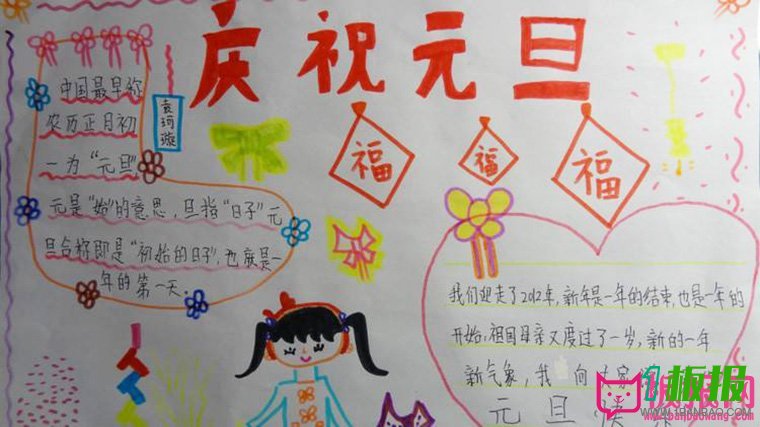 庆祝元旦
中国最早称
农历正月初
一为“元旦”
元是“始”的意思，旦指“日子”元
旦合称即是“初始的日子”，也就是一
年的第一天。
袁珂璇
福
福
福
我们迎走了2012年，新年是一年的结束，也是一年的
开始，祖国母亲又度过了一岁，新的一年
新气象，我 向大家
元旦快
板报
WWW.1BANBAO.COM